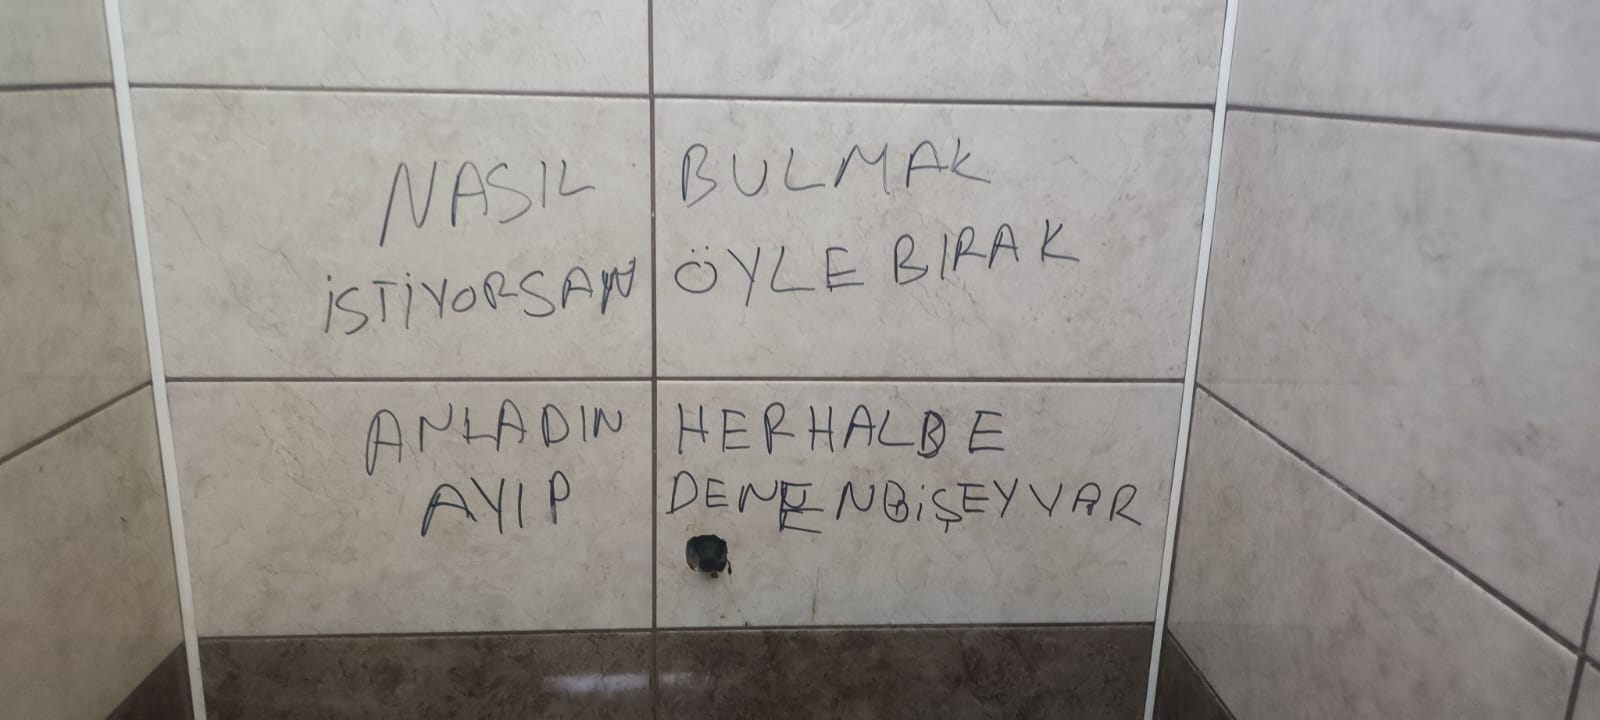 NASIL BULMAK
İSTİYORSAN ÖYLE BIRAK
ANLADIN HERHALDE
AYIP DENEN BİŞEY VAR